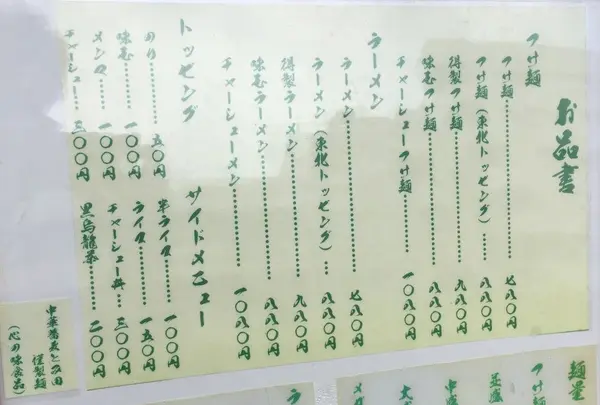 お品書
つけ麺
つけ麺……………七八〇円
つけ麺(東北トッピング)…八八〇円
得製つけ麺……………九八〇円
味玉つけ麺……………八八〇円
チャーシューつけ麺………一〇八〇円
ラーメン
ラーメン……………七八〇円
ラーメン(東北トッピング)…八八〇円
得製ラーメン……………九八〇円
味玉ラーメン……………八八〇円
チャーシューメン…………一〇八〇円
トッピング
のり……………五〇円
味玉……………一〇〇円
メンマ……………一〇〇円
チャーシュー……三〇〇円
サイドメニュー
半ライス……一〇〇円
ライス………一五〇円
チャーシュー丼…三〇〇円
黒烏龍茶………二〇〇円
中華蕎麦とみ田
謹製麺
(心の味食品)
麺量
つけ麺
並盛
中盛
大
メ
ラ